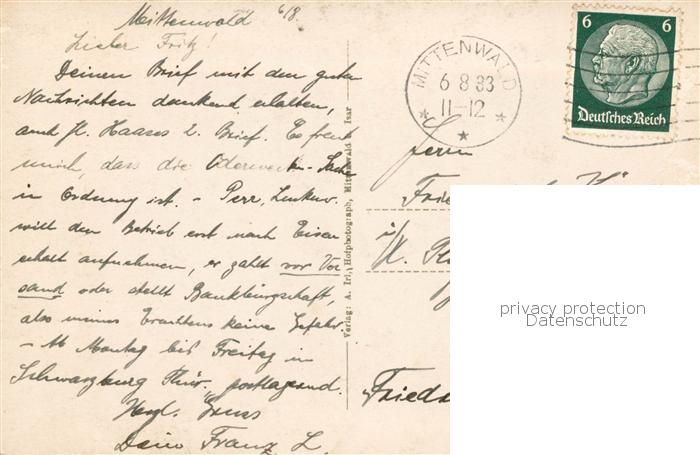 Mittenwald 6/8.
Lieber Fritz!
Deinen Brief mit den guten
Nachrichten dankend erhalten,
auch Haases 2. Brief. Es freut
mich, dass die Oderwerke-Sache
in Ordnung ist. -
will den Betrieb erst nach Eisen
erhalt aufnehmen, er zahlt vor Ver
sand oder stellt Bankbürgschaft,
also meines Erachtens keine Gefahr.
- Ab Montag bis Freitag in
Schwarzburg Thür. postlagernd.
Herzl. Gruss
Dein Franz L.
Verlag: A. Irl, Hofphotograph, Mittenwald a. Isar
MITTENWALD
6 8 33
11-12
6 6
Deutsches Reich
Herrn
i/
Frieds
privacy protection
Datenschutz